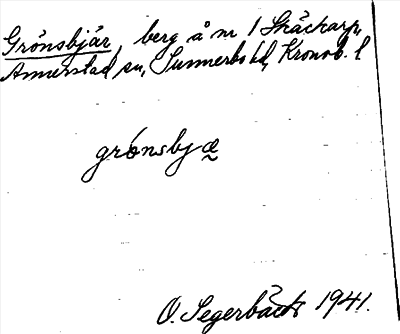 Grönsbjär, berg å nr 1 Skäckarp,
Annerstad sn, Sunnerbo hd, Kronob. l
grönsbjæ
O. Segerbäck 1941.